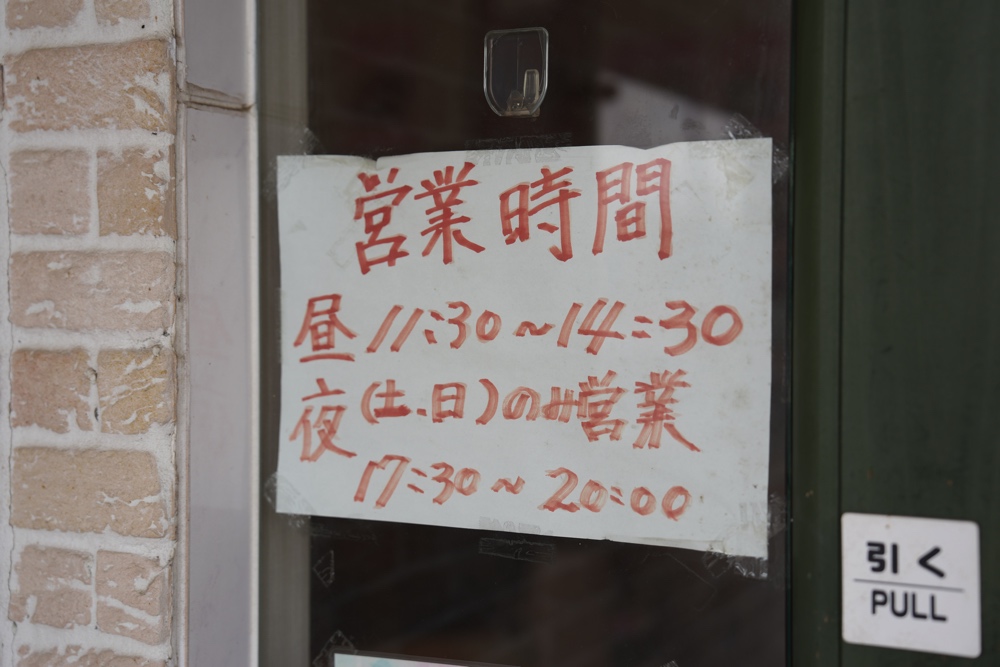 営業時間
昼 11:30~14:30
夜(土.日)のみ営業
17:30~20:00
引く
PULL